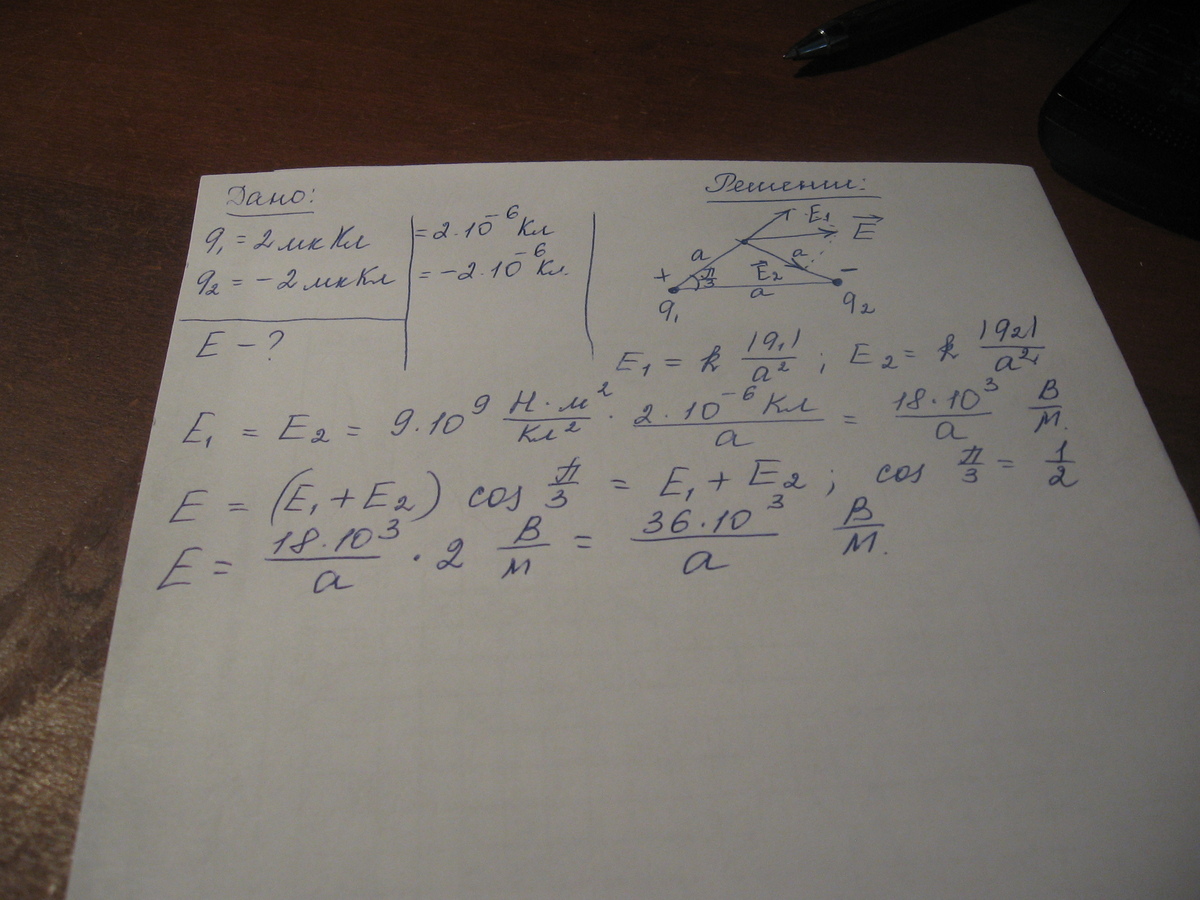 Дано:
q₁ = 2 мкКл = 2·10⁻⁶ Кл
q₂ = -2 мкКл = -2·10⁻⁶ Кл.
E - ?
Решении:
E₁
E⃗
a
a
+
π/3
E⃗₂
-
q₁
a
q₂
E₁ = k |q₁|/a² ; E₂ = k |q₂|/a²
E₁ = E₂ = 9·10⁹ Н·м²/Кл² · 2·10⁻⁶ Кл/a = 18·10³/a В/м.
E = (E₁ + E₂) cos π/3 = E₁ + E₂ ; cos π/3 = 1/2
E = 18·10³/a · 2 В/м = 36·10³/a В/м.